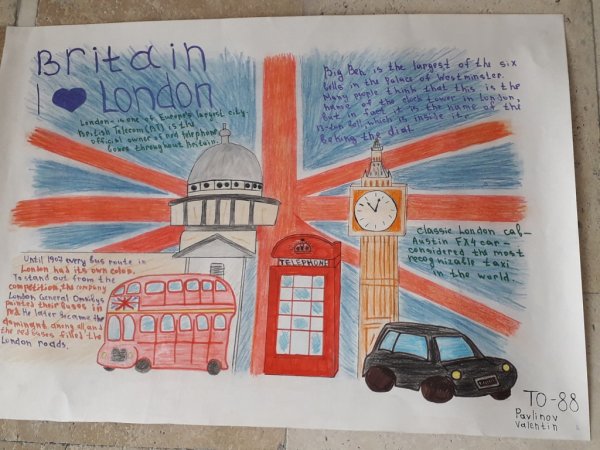 Britain
I ♥ London
London is one of Europe's largest city.
British Telecom (BT) is the
official owner of red telephone
boxes throughout Britain.
Big Ben is the largest of the six
bells in the Palace of Westminster.
Many people think that this is the
name of the clock tower in London,
but in fact it is the name of the
13-ton bell, which is inside it.
Behing the dial
TELEPHONE
Classic London cab-
Austin FX4 car -
considered the most
recognizable taxi
in the world.
Until 1907 every bus route in
London had its own color.
To stand out from the
competition, the company
London General Omnibys
painted their buses in
red. He later became the
dominant among all, and
the red buses filled the
London roads.
TO-88
Pavlinov
Valentin